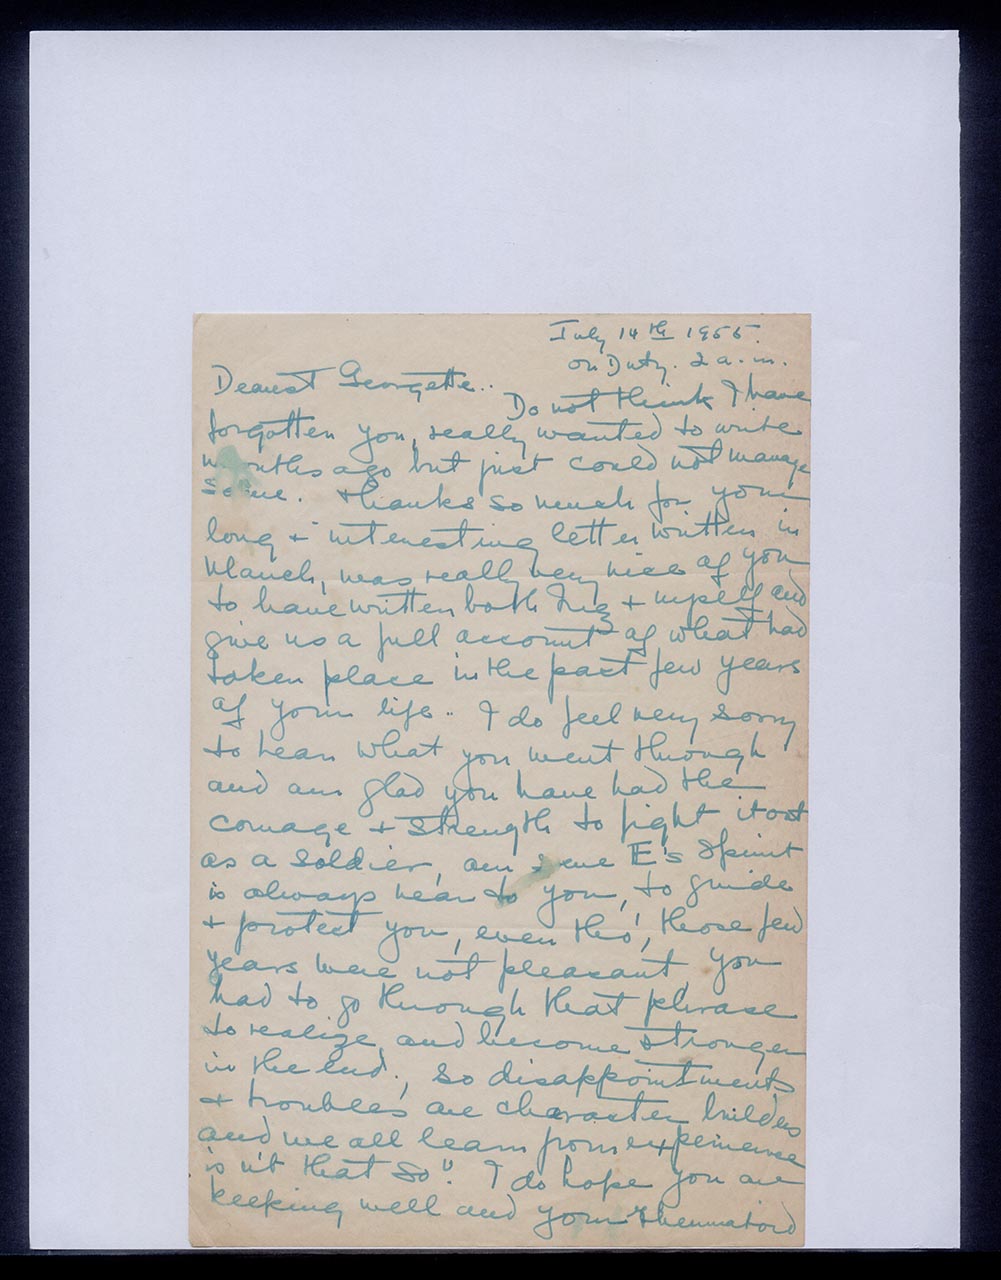 July 14th 1955.
on Duty. 2 a.m.
Dearest Georgette..
Do not think I have
forgotten you, really wanted to write
months ago but just could not manage
some. Thanks so much for your
long + interesting letter written in
March, was really very nice of you
to have written both Inez + myself and
give us a full account of what had
taken place in the past few years
of your life.. I do feel very sorry
to hear what you went through
and am glad you have had the
courage + strength to fight it out
as a soldier, am sure E's Spirit
is always near to you, to guide
+ protect you, even tho', those few
years were not pleasant, you
had to go through that phrase
to realize, and become stronger
in the end., so disappointments
+ troubles are character builders
and we all learn from experience
is n't that so". I do hope you are
keeping well and your rheumatoid